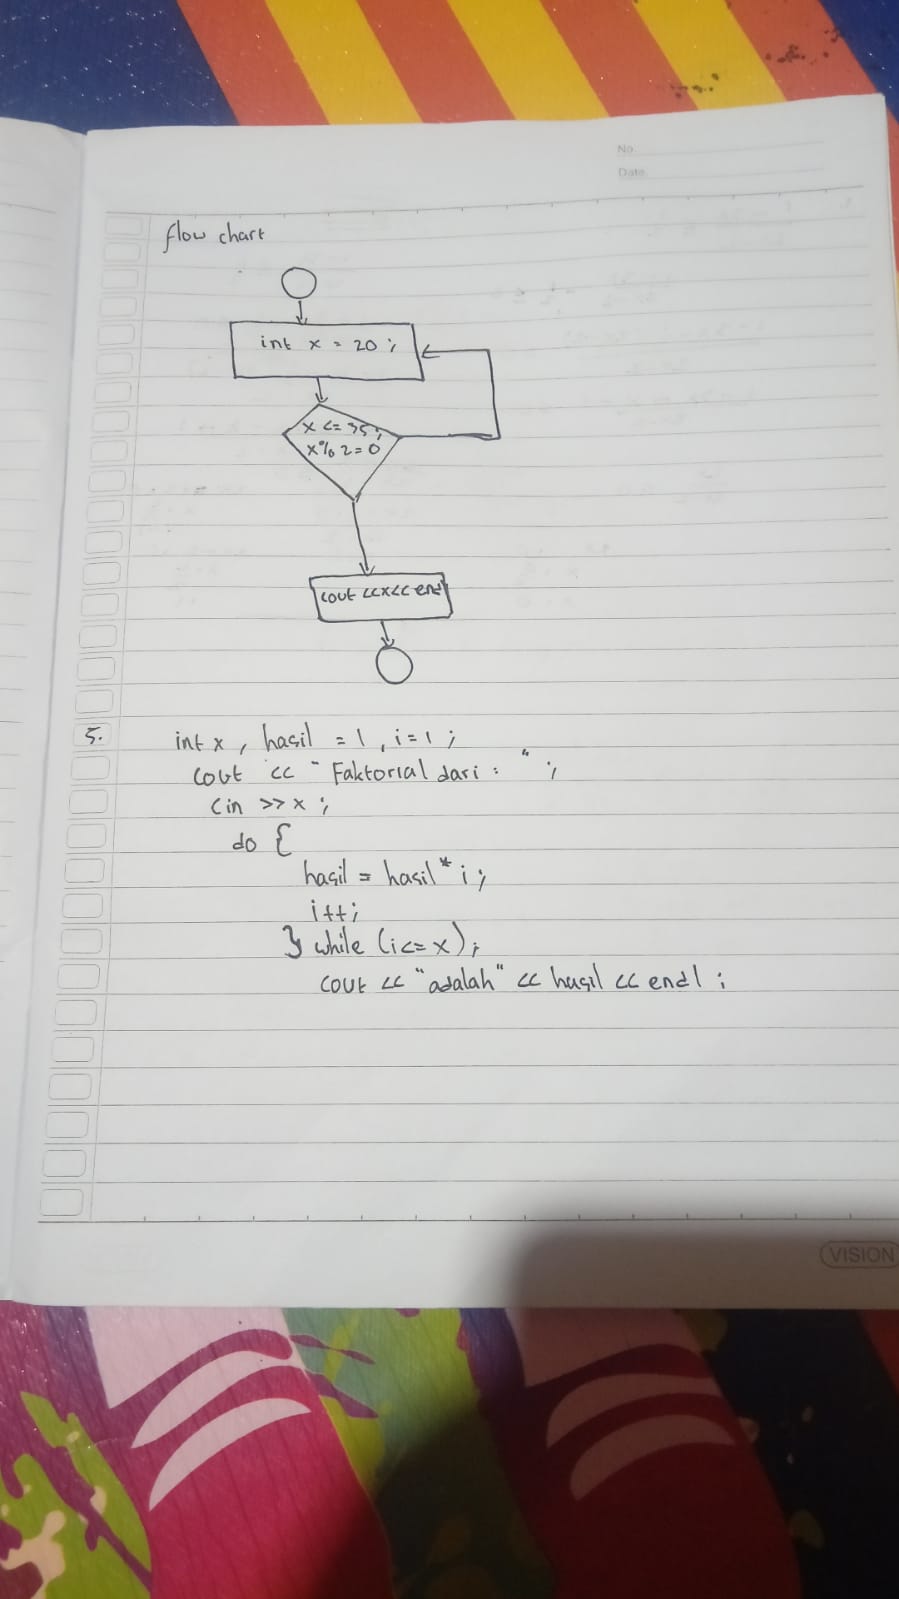 No.
Date.
flow chart
int x = 20 ;
x <= 35 ;
x % 2 = 0
cout <<x<< endl
5.
int x , hasil = 1 , i = 1 ;
cout << " Faktorial dari : " ;
cin >> x ;
do {
hasil = hasil * i ;
i++;
} while (i<= x) ;
cout << "adalah" << hasil << endl ;
VISION